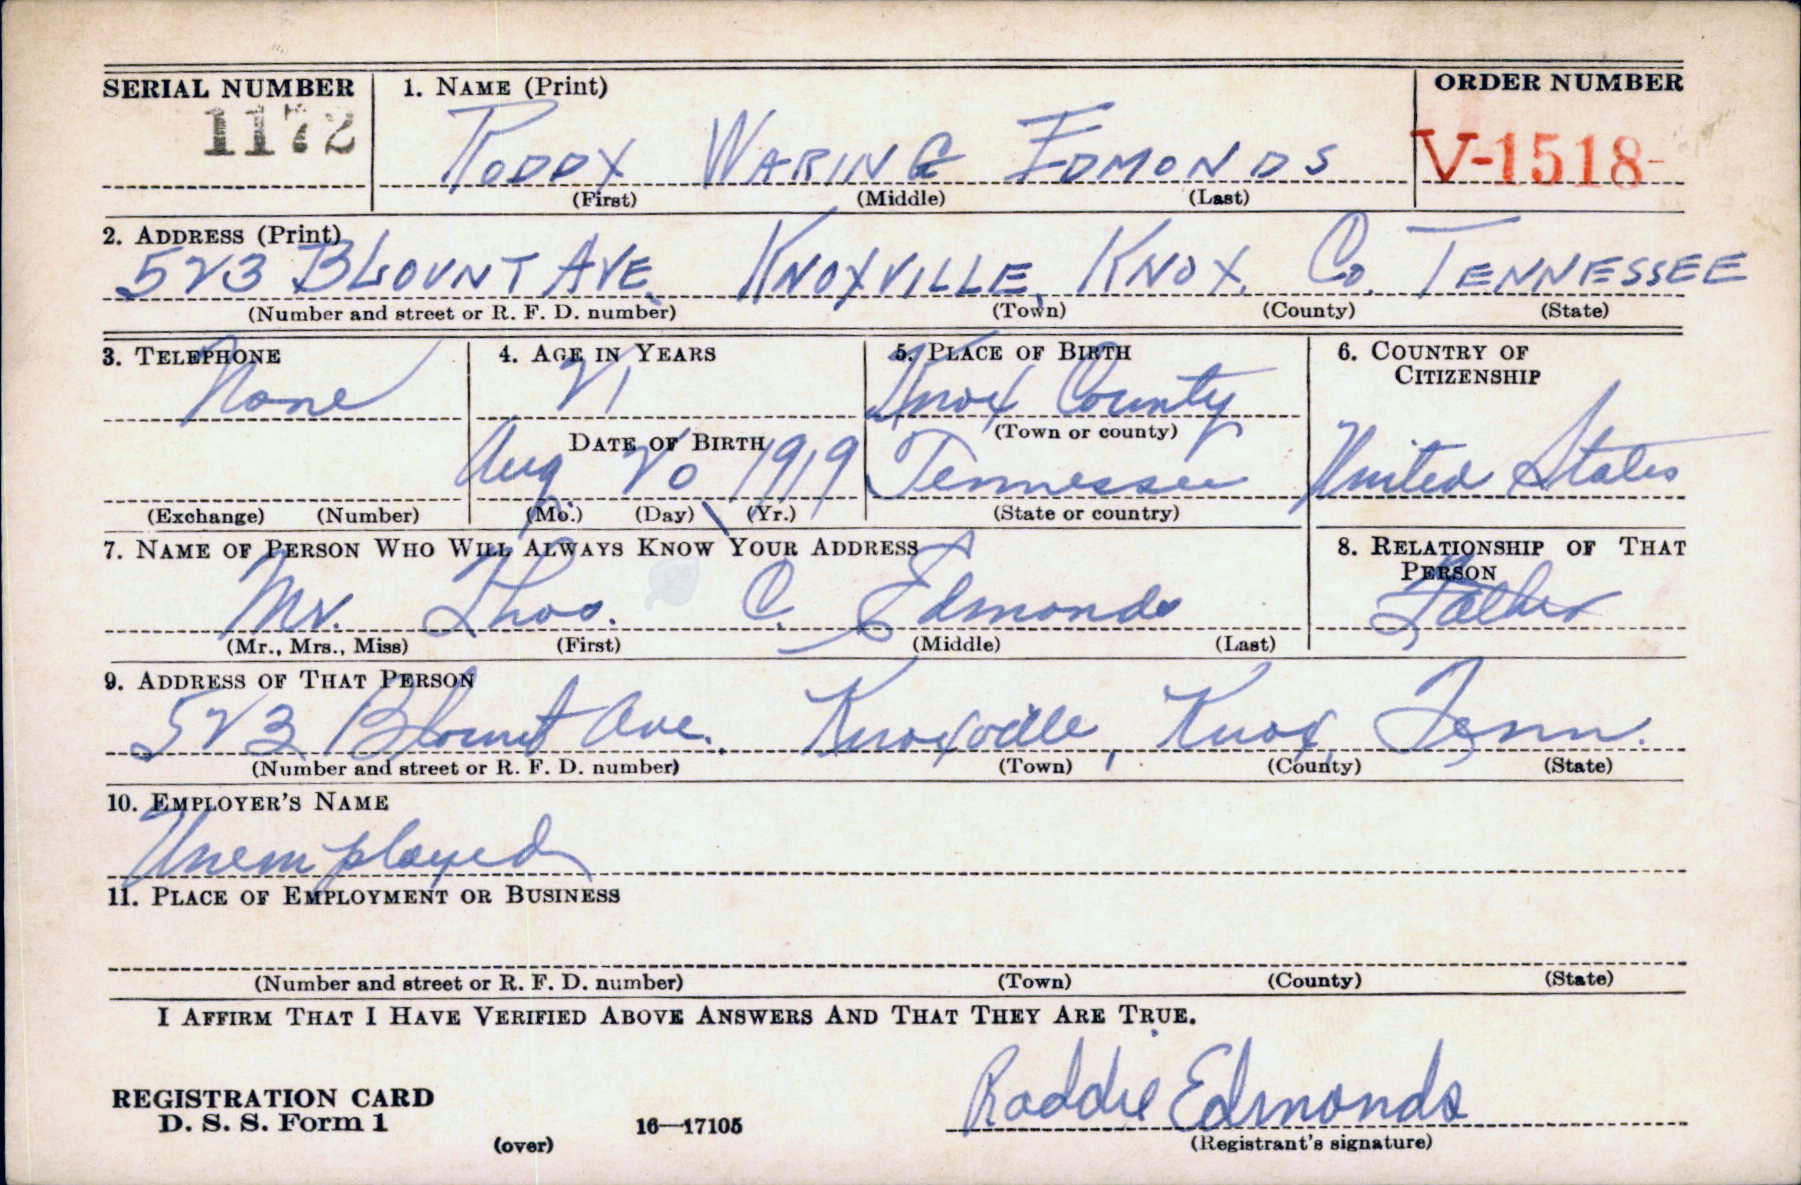 SERIAL NUMBER 1. NAME (Print) ORDER NUMBER
1172 RODDY WARING EDMONDS V-1518-
(First) (Middle) (Last)
2. ADDRESS (Print)
523 BLOUNT AVE. KNOXVILLE, KNOX. Co. TENNESSEE
(Number and street or R. F. D. number) (Town) (County) (State)
3. TELEPHONE 4. AGE IN YEARS 5. PLACE OF BIRTH 6. COUNTRY OF CITIZENSHIP
None 21 Knox County
DATE OF BIRTH (Town or county)
Aug 20 1919 Tennessee United States
(Exchange) (Number) (Mo.) (Day) (Yr.) (State or country)
7. NAME OF PERSON WHO WILL ALWAYS KNOW YOUR ADDRESS 8. RELATIONSHIP OF THAT PERSON
Mr. Thos. C. Edmonds Father
(Mr., Mrs., Miss) (First) (Middle) (Last)
9. ADDRESS OF THAT PERSON
523 Blount Ave. Knoxville, Knox, Tenn.
(Number and street or R. F. D. number) (Town) (County) (State)
10. EMPLOYER'S NAME
Unemployed
11. PLACE OF EMPLOYMENT OR BUSINESS
(Number and street or R. F. D. number) (Town) (County) (State)
I AFFIRM THAT I HAVE VERIFIED ABOVE ANSWERS AND THAT THEY ARE TRUE.
REGISTRATION CARD
D. S. S. Form 1 16—17105 Roddie Edmonds
(over) (Registrant's signature)